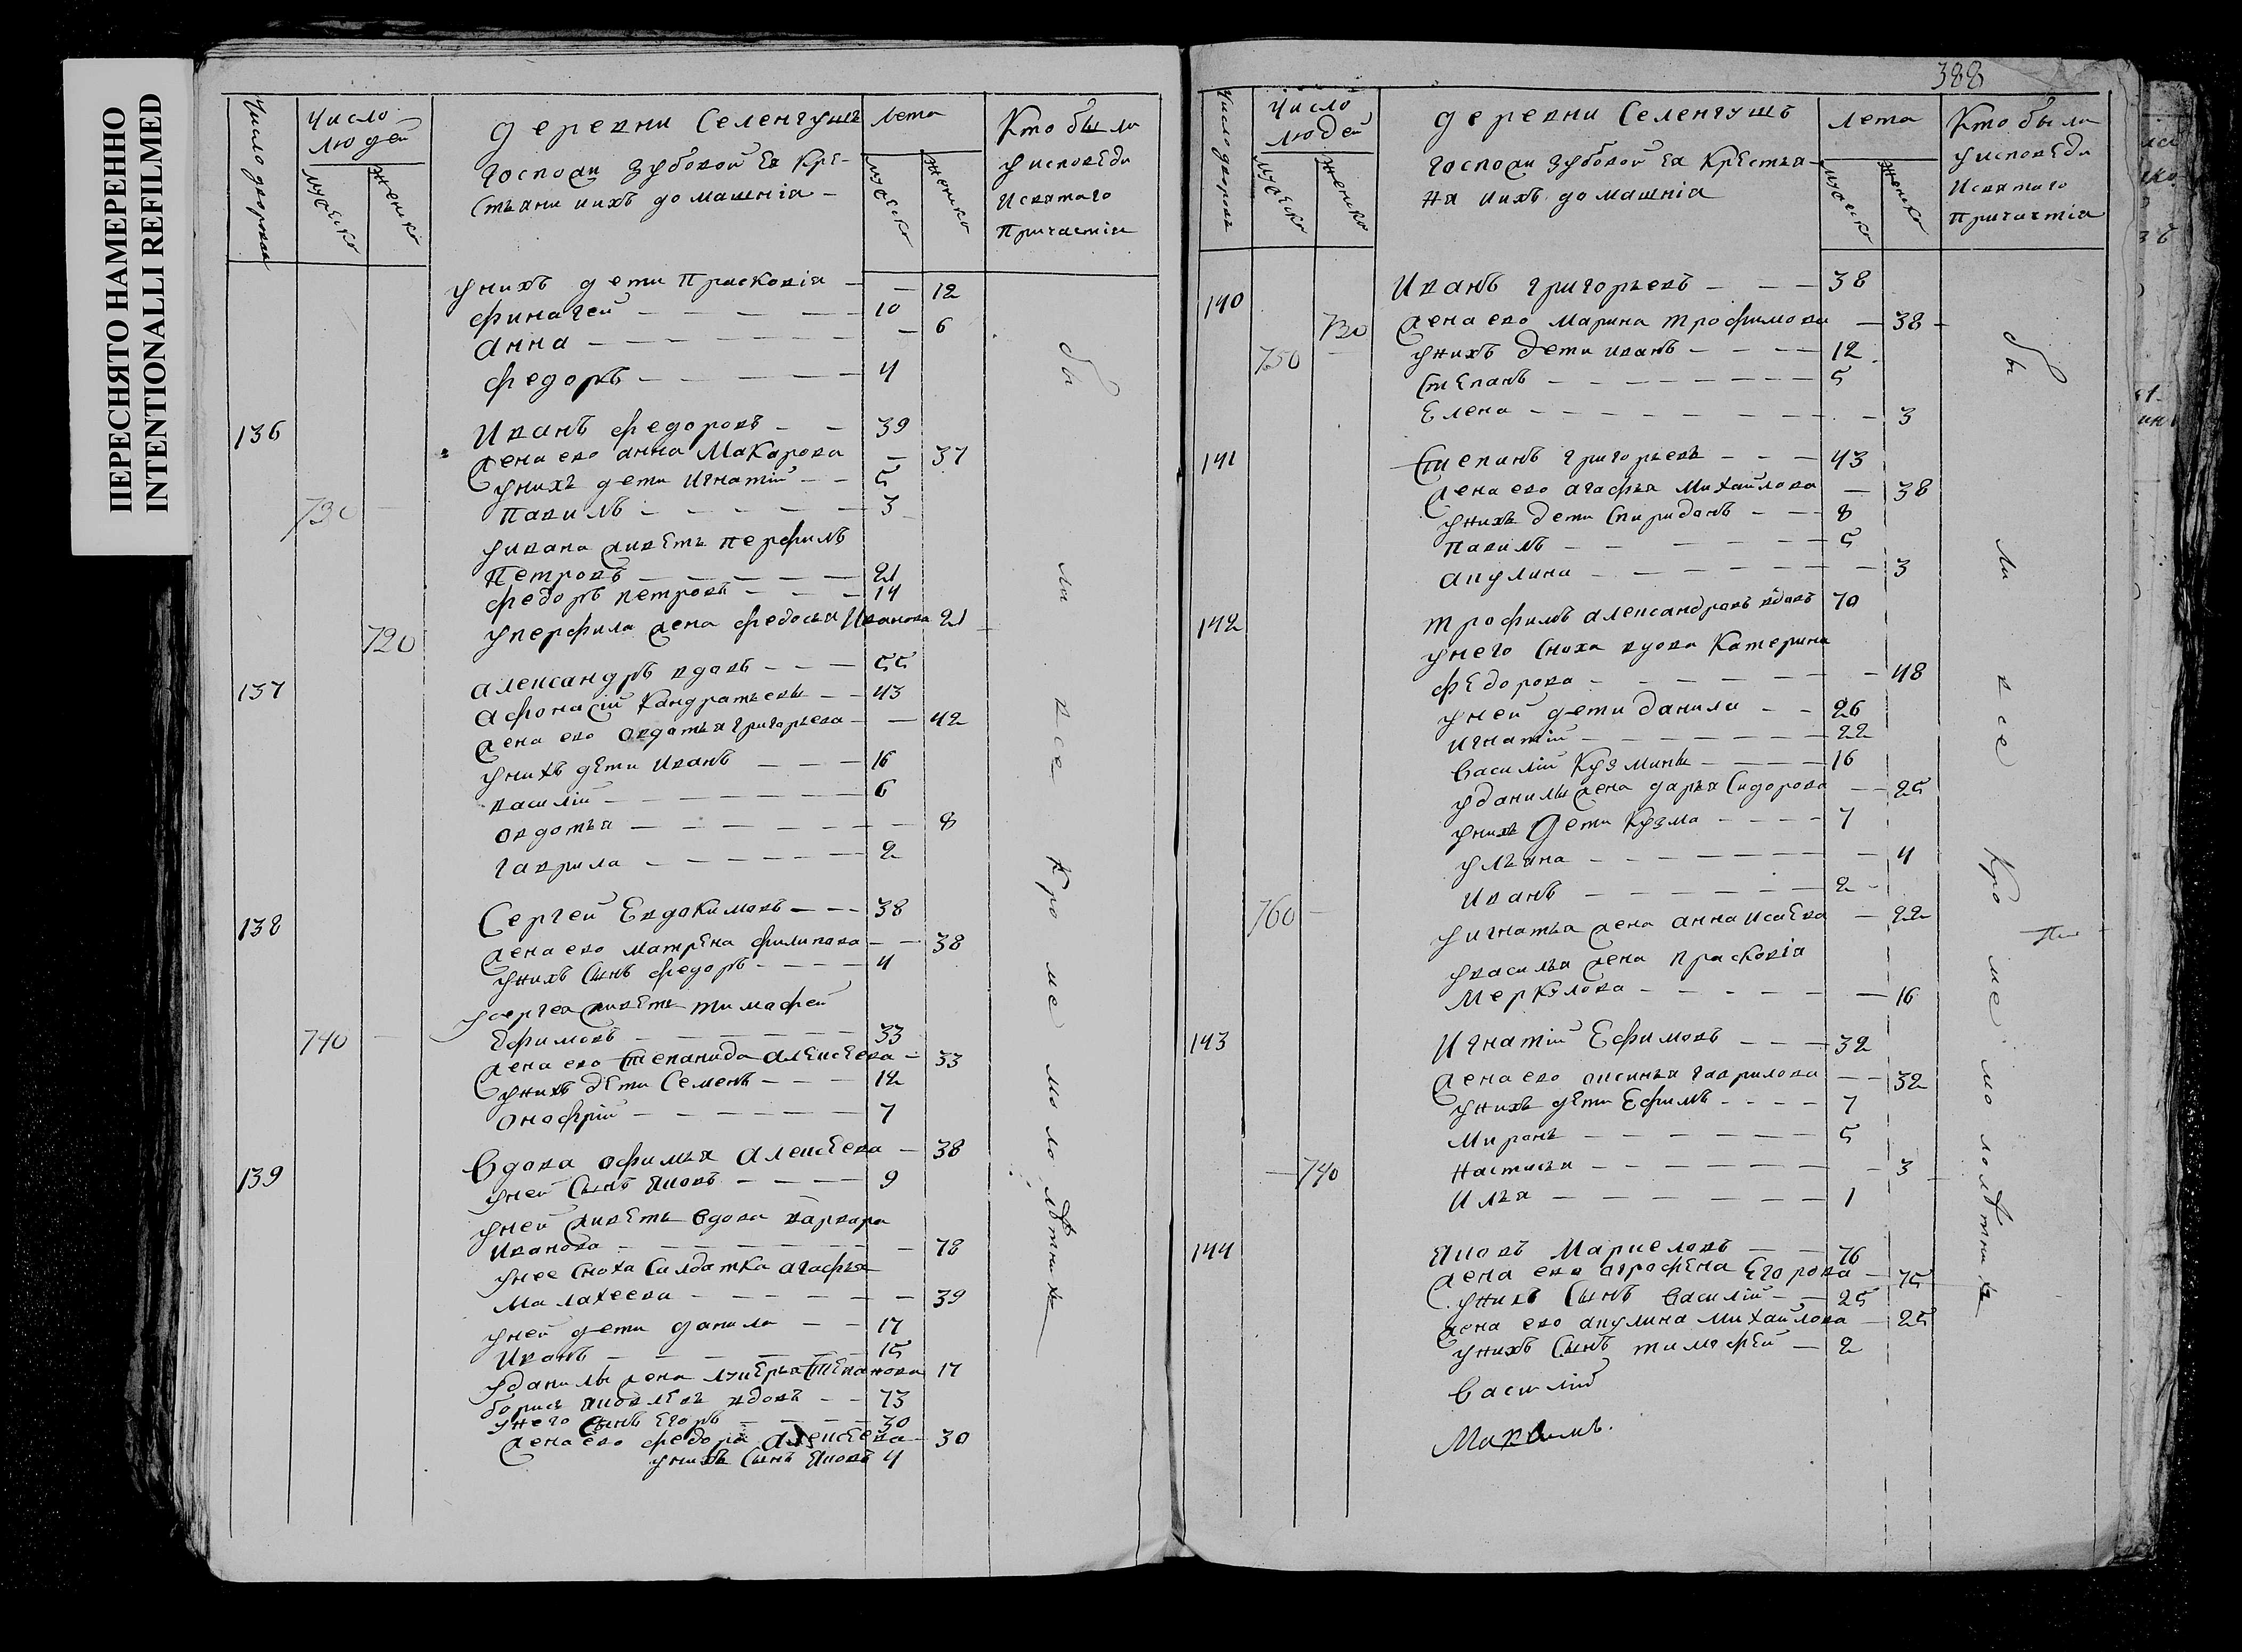 ПЕРЕСНЯТО НАМЕРЕННО
INTENTIONALLI REFILMED
Число дворовъ
Число людей
мужеска
женска
деревни Селенгушъ
госпожи Зубовой Ея Кре-
стьяни ихъ домашнiа
лета
мужеска
женска
Кто были
у исповеди
и святаго
Причастiя
у нихъ дети Прасковiя — 12
финагей — 10
анна — 6
федоръ — 4
136 Иванъ федоровъ — 39
жена ево анна Макарова — 37
у нихъ дети игнатiй — 5
730 павилъ — 3
у ивана живетъ перфилъ
петровъ — 21
федоръ петровъ — 14
720 у перфила жена федосья Иванова 21
137 александръ вдовъ — 55
афонасiй Кандратьевъ — 43
жена ево овдотья григорьева — 42
у нихъ дети иванъ — 16
василiй — 6
овдотья — 8
гаврила — 2
138 Сергей Евдокимовъ — 38
жена ево матрена филипова — 38
у нихъ сынъ федоръ — 4
у сергея живетъ тимафей
740 Ефимовъ — 33
жена ево степанида алексеева — 33
у нихъ дети семенъ — 12
онофрiй — 7
139 Вдова офимья алексеева — 38
у ней сынъ яковъ — 9
у ней живетъ вдова варвара
иванова — 78
у нее сноха салдатка агафья
малахеева — 39
у ней дети данила — 17
иванъ — 15
у данилы жена лукерья степанова 17
борисъ яковлевъ вдовъ — 73
у него сынъ егоръ — 30
жена ево федора алексеева — 30
у нихъ сынъ яковъ 4
бы ли все кро ме ма ло лѣтныхъ
388
Число дворовъ
Число людей
мужеска
женска
деревни Селенгушъ
госпожи Зубовой Ея Крестья-
ня и ихъ домашнiа
лета
мужеска
женска
Кто были
у исповеди
и святаго
Причастiя
140 Иванъ григорьевъ — 38
730 жена ево марина трофимова — 38
750 у нихъ дети иванъ — 12
степанъ — 5
Елена — 3
141 степанъ григорьевъ — 43
жена ево агафья михайлова — 38
у нихъ дети спиридонъ — 8
павилъ — 5
акулина — 3
142 трофимъ александровъ вдовъ 70
у него сноха вдова Катерина
федорова — 48
у ней дети данила — 26
игнатiй — 22
василiй Кузмины — 16
у данилы жена дарья сидорова — 25
у нихъ дети Кузма — 7
ульяна — 4
иванъ — 2
760 у игнатья жена анна исаева — 22
у василья жена прасковiя
меркулова — 16
143 Игнатiй Ефимовъ — 32
жена ево аксинья гаврилова — 32
у нихъ дети Ефимъ — 7
миронъ — 5
740 настасья — 3
илья — 1
144 яковъ маркеловъ — 76
жена ево аграфена Егорова — 75
у нихъ сынъ василiй — 25
жена ево акулина михайлова — 25
у нихъ сынъ тимофей — 2
василiй
Максимъ.
бы ли все кро ме мо лолѣтныхъ